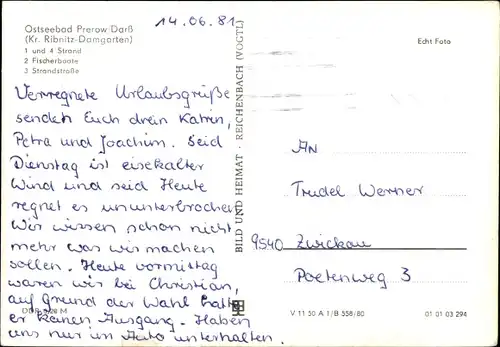 Ostseebad Prerow/Darß
(Kr. Ribnitz-Damgarten)
1 und 4 Strand
2 Fischerboote
3 Strandstraße
14.06.81
Echt Foto
Verregnete Urlaubsgrüße
senden Euch drein Katrin,
Petra und Joachim. Seid
Dienstag ist eisekalter
Wind und seid Heute
regnet es ununterbrochen
Wir wissen schon nicht
mehr was wir machen
sollen. Heute vormittag
waren wir bei Christian,
auf Grund der Wahl hatte
er kanen Ausgang. Haben
uns nur im Auto unterhalten.
BILD UND HEIMAT · REICHENBACH (VOGTL)
AN
Trudel Werner
9540 Zwickau
Poetenweg 3
V 11 50 A 1/B 558/80
01 01 03 294